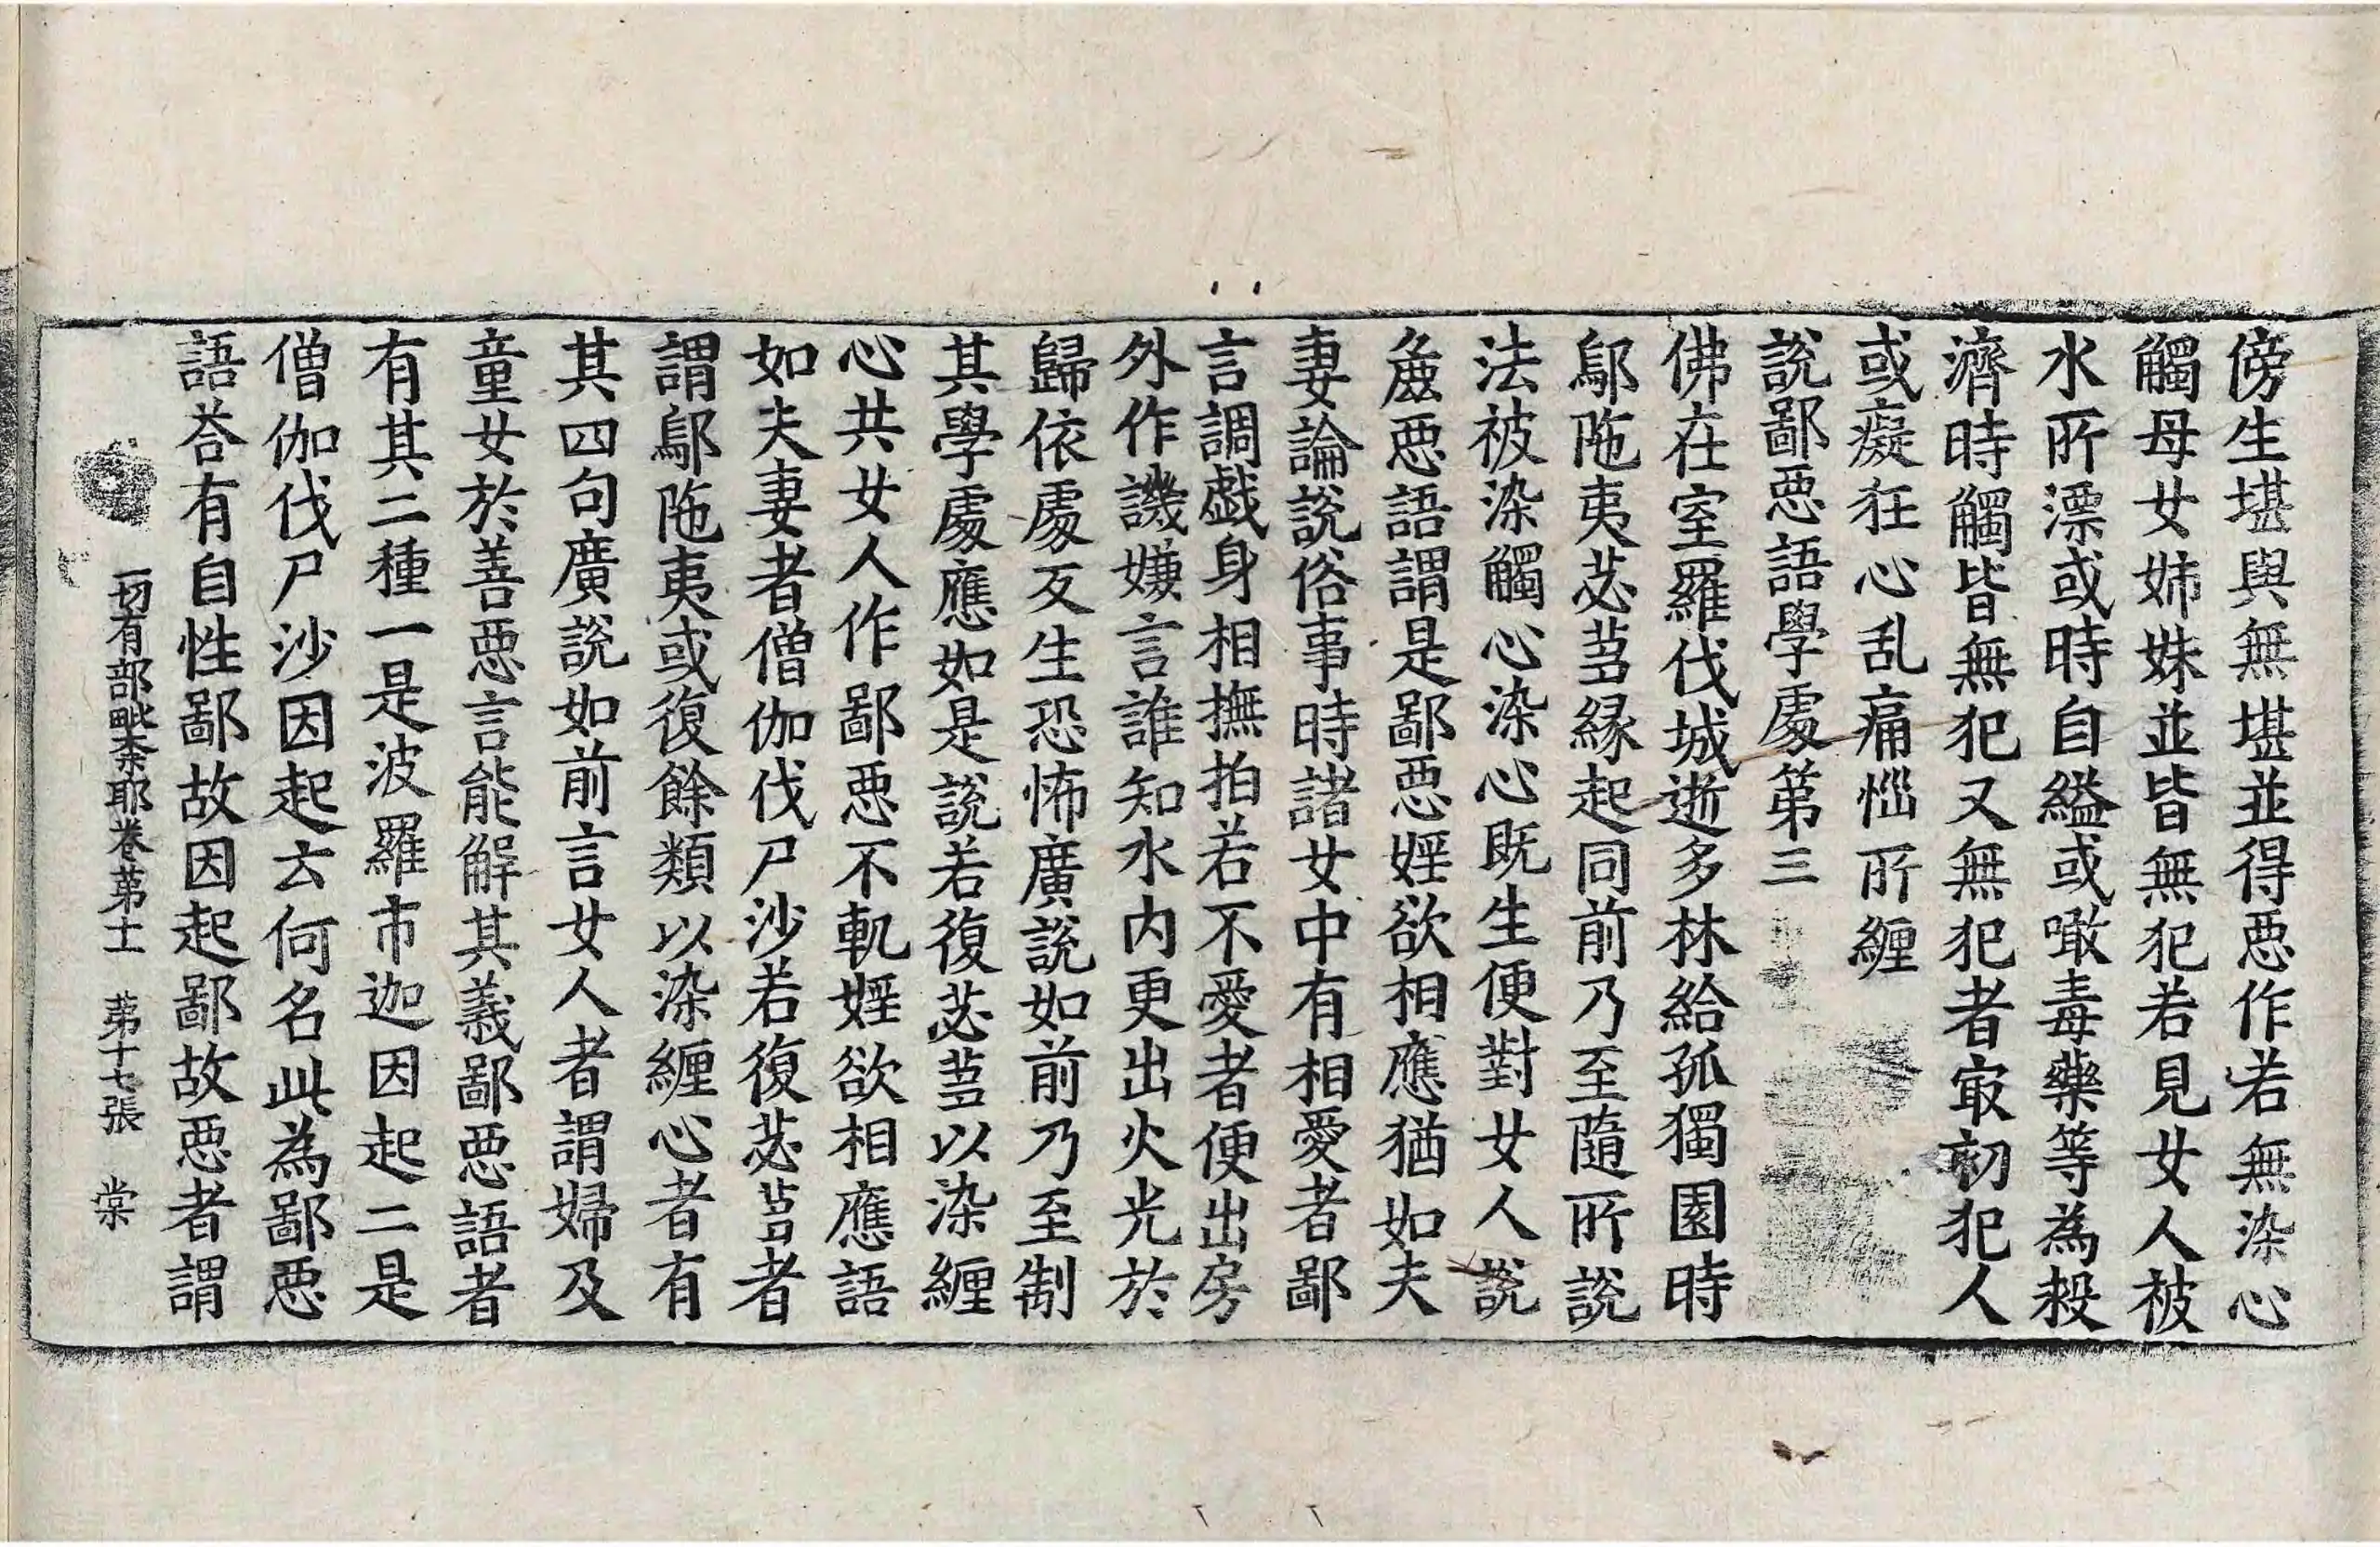 傍生堪與無堪並得惡作若無染心
觸母女姉妹並皆無犯若見女人被
水所漂或時自縊或噉毒藥等為殺
濟時觸皆無犯又無犯者㝡初犯人
或癡狂心乱痛惱所纏
說鄙惡語學處第三
佛在室羅伐城逝多林給孤獨園時
鄔陁夷苾芻緣起同前乃至隨所說
法被染觸心染心既生便對女人說
麁惡語謂是鄙惡婬欲相應猶如夫
妻論說俗事時諸女中有相愛者鄙
言調戲身相撫拍若不愛者便出房
外作譏嫌言誰知水內更出火光於
歸依處反生恐怖廣說如前乃至制
其學處應如是說若復苾芻以染纏
心共女人作鄙惡不軌婬欲相應語
如夫妻者僧伽伐尸沙若復苾芻者
謂鄔陁夷或復餘類以染纏心者有
其四句廣說如前言女人者謂婦及
童女於善惡言能解其義鄙惡語者
有其二種一是波羅市迦因起二是
僧伽伐尸沙因起云何名此為鄙惡
語荅有自性鄙故因起鄙故惡者謂
一切有部毗柰耶卷苐十一　苐十七張　棠